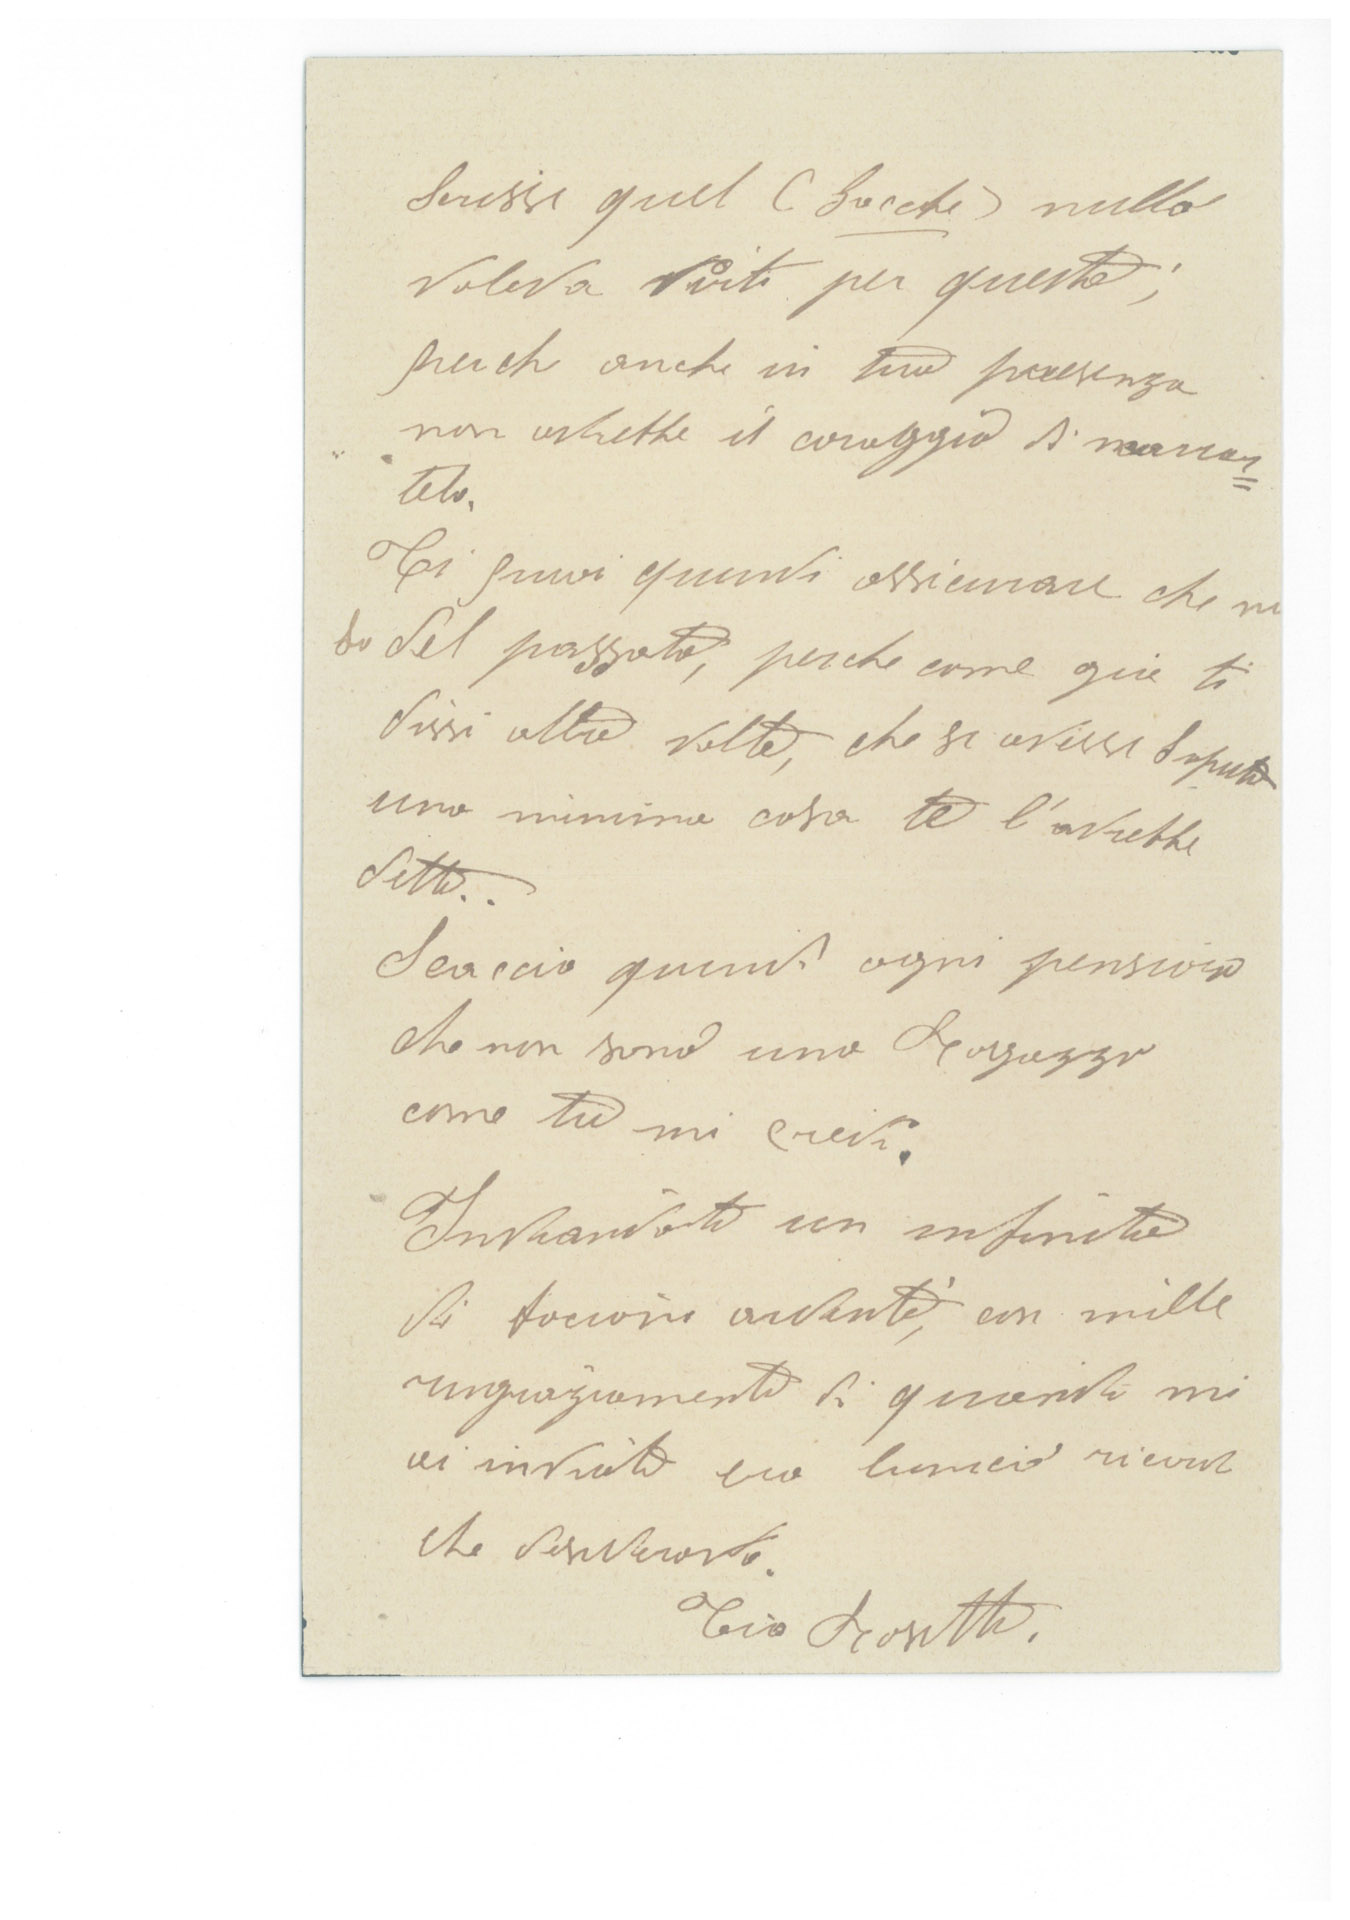 scrissi quel (Bocche) nulla
voleva dirti per questo;
perche anche in tua presenza
non avrebbe il coraggio di
telo.
Ti puoi quindi assicurare che
del passato, perche come gia ti
dissi altre volte, che se avessi saputo
una minima cosa te l'avrebbe
detto..
Scaccia quindi ogni pensiero
che non sono una Ragazza
come tu mi credi.
Inviandoti un infinità
di baccioni ardenti, con mille
ringraziamenti di quando mi
ai inviato
che desideravo.
Tua Rosetta.